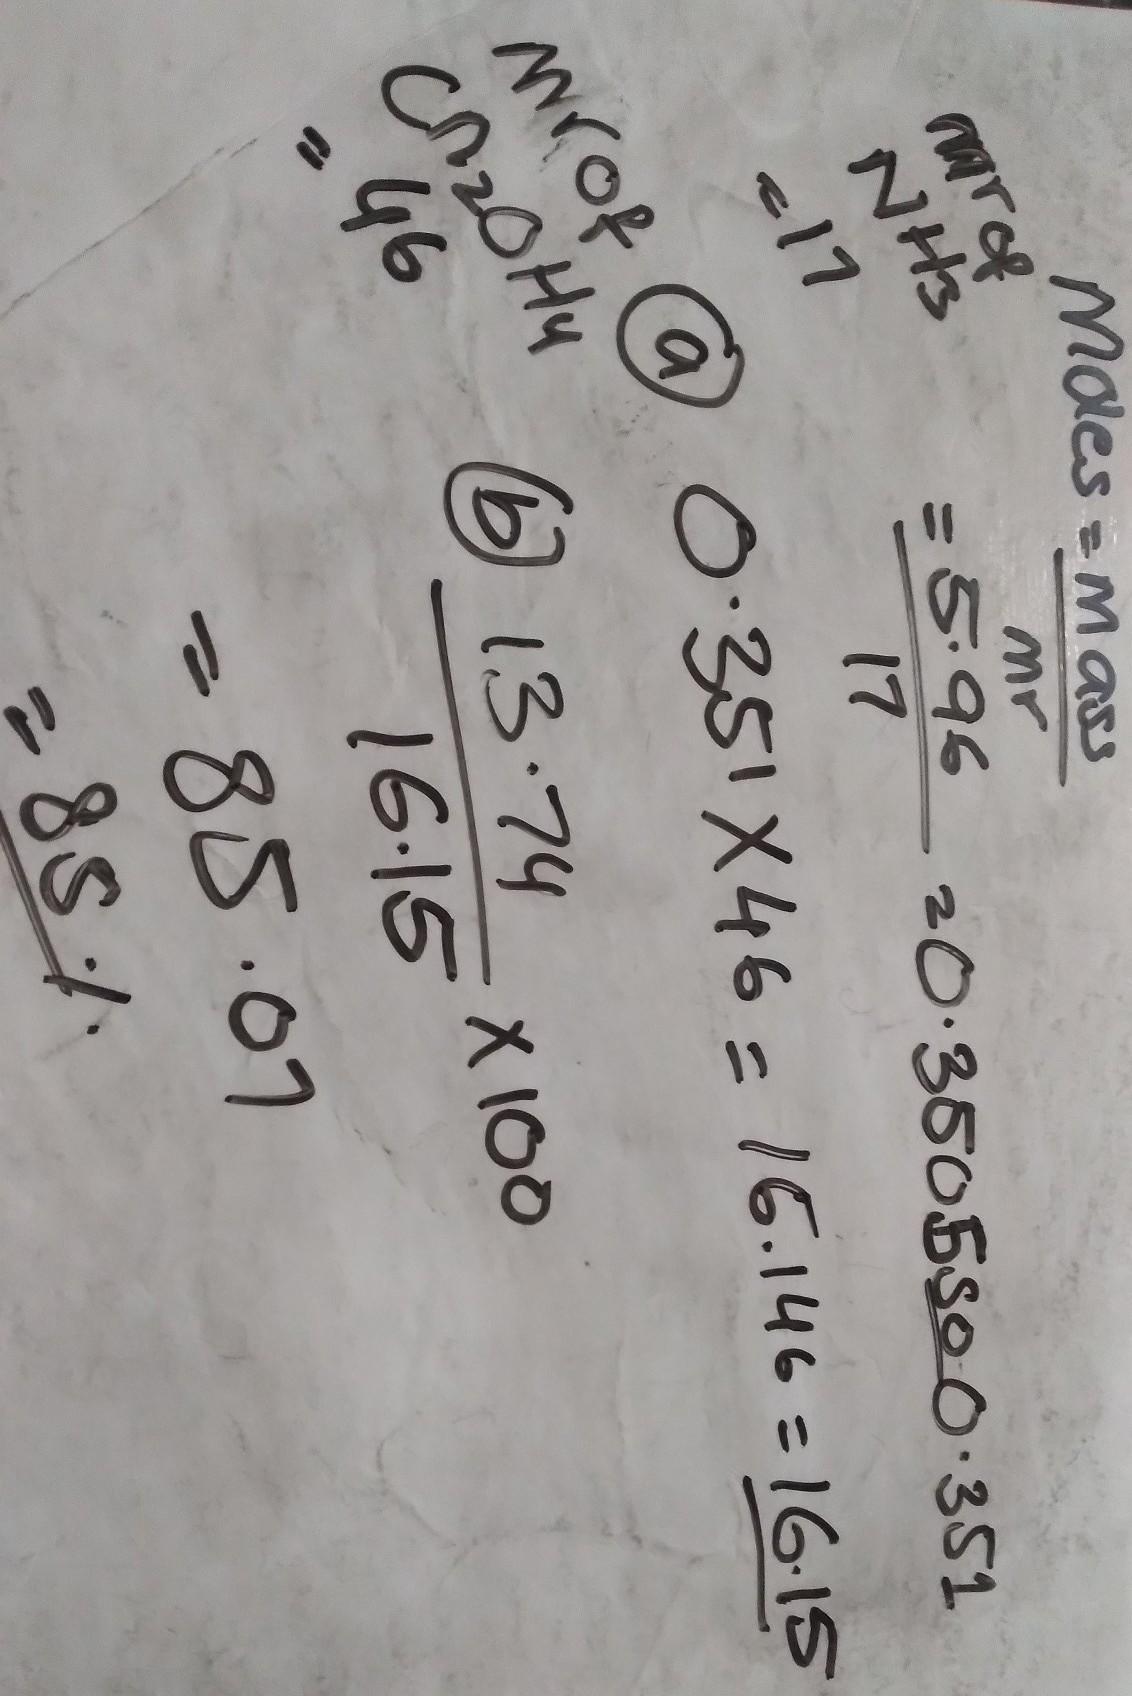 Moles = mass
mr
mr of
NH3
= 17
= 5.96
17
= 0.3505 so 0.351
Mr of
CN2OH4
= 46
a 0.351 X 46 = 16.146 = 16.15
b 13.74
16.15
X 100
= 85.07
= 85 %